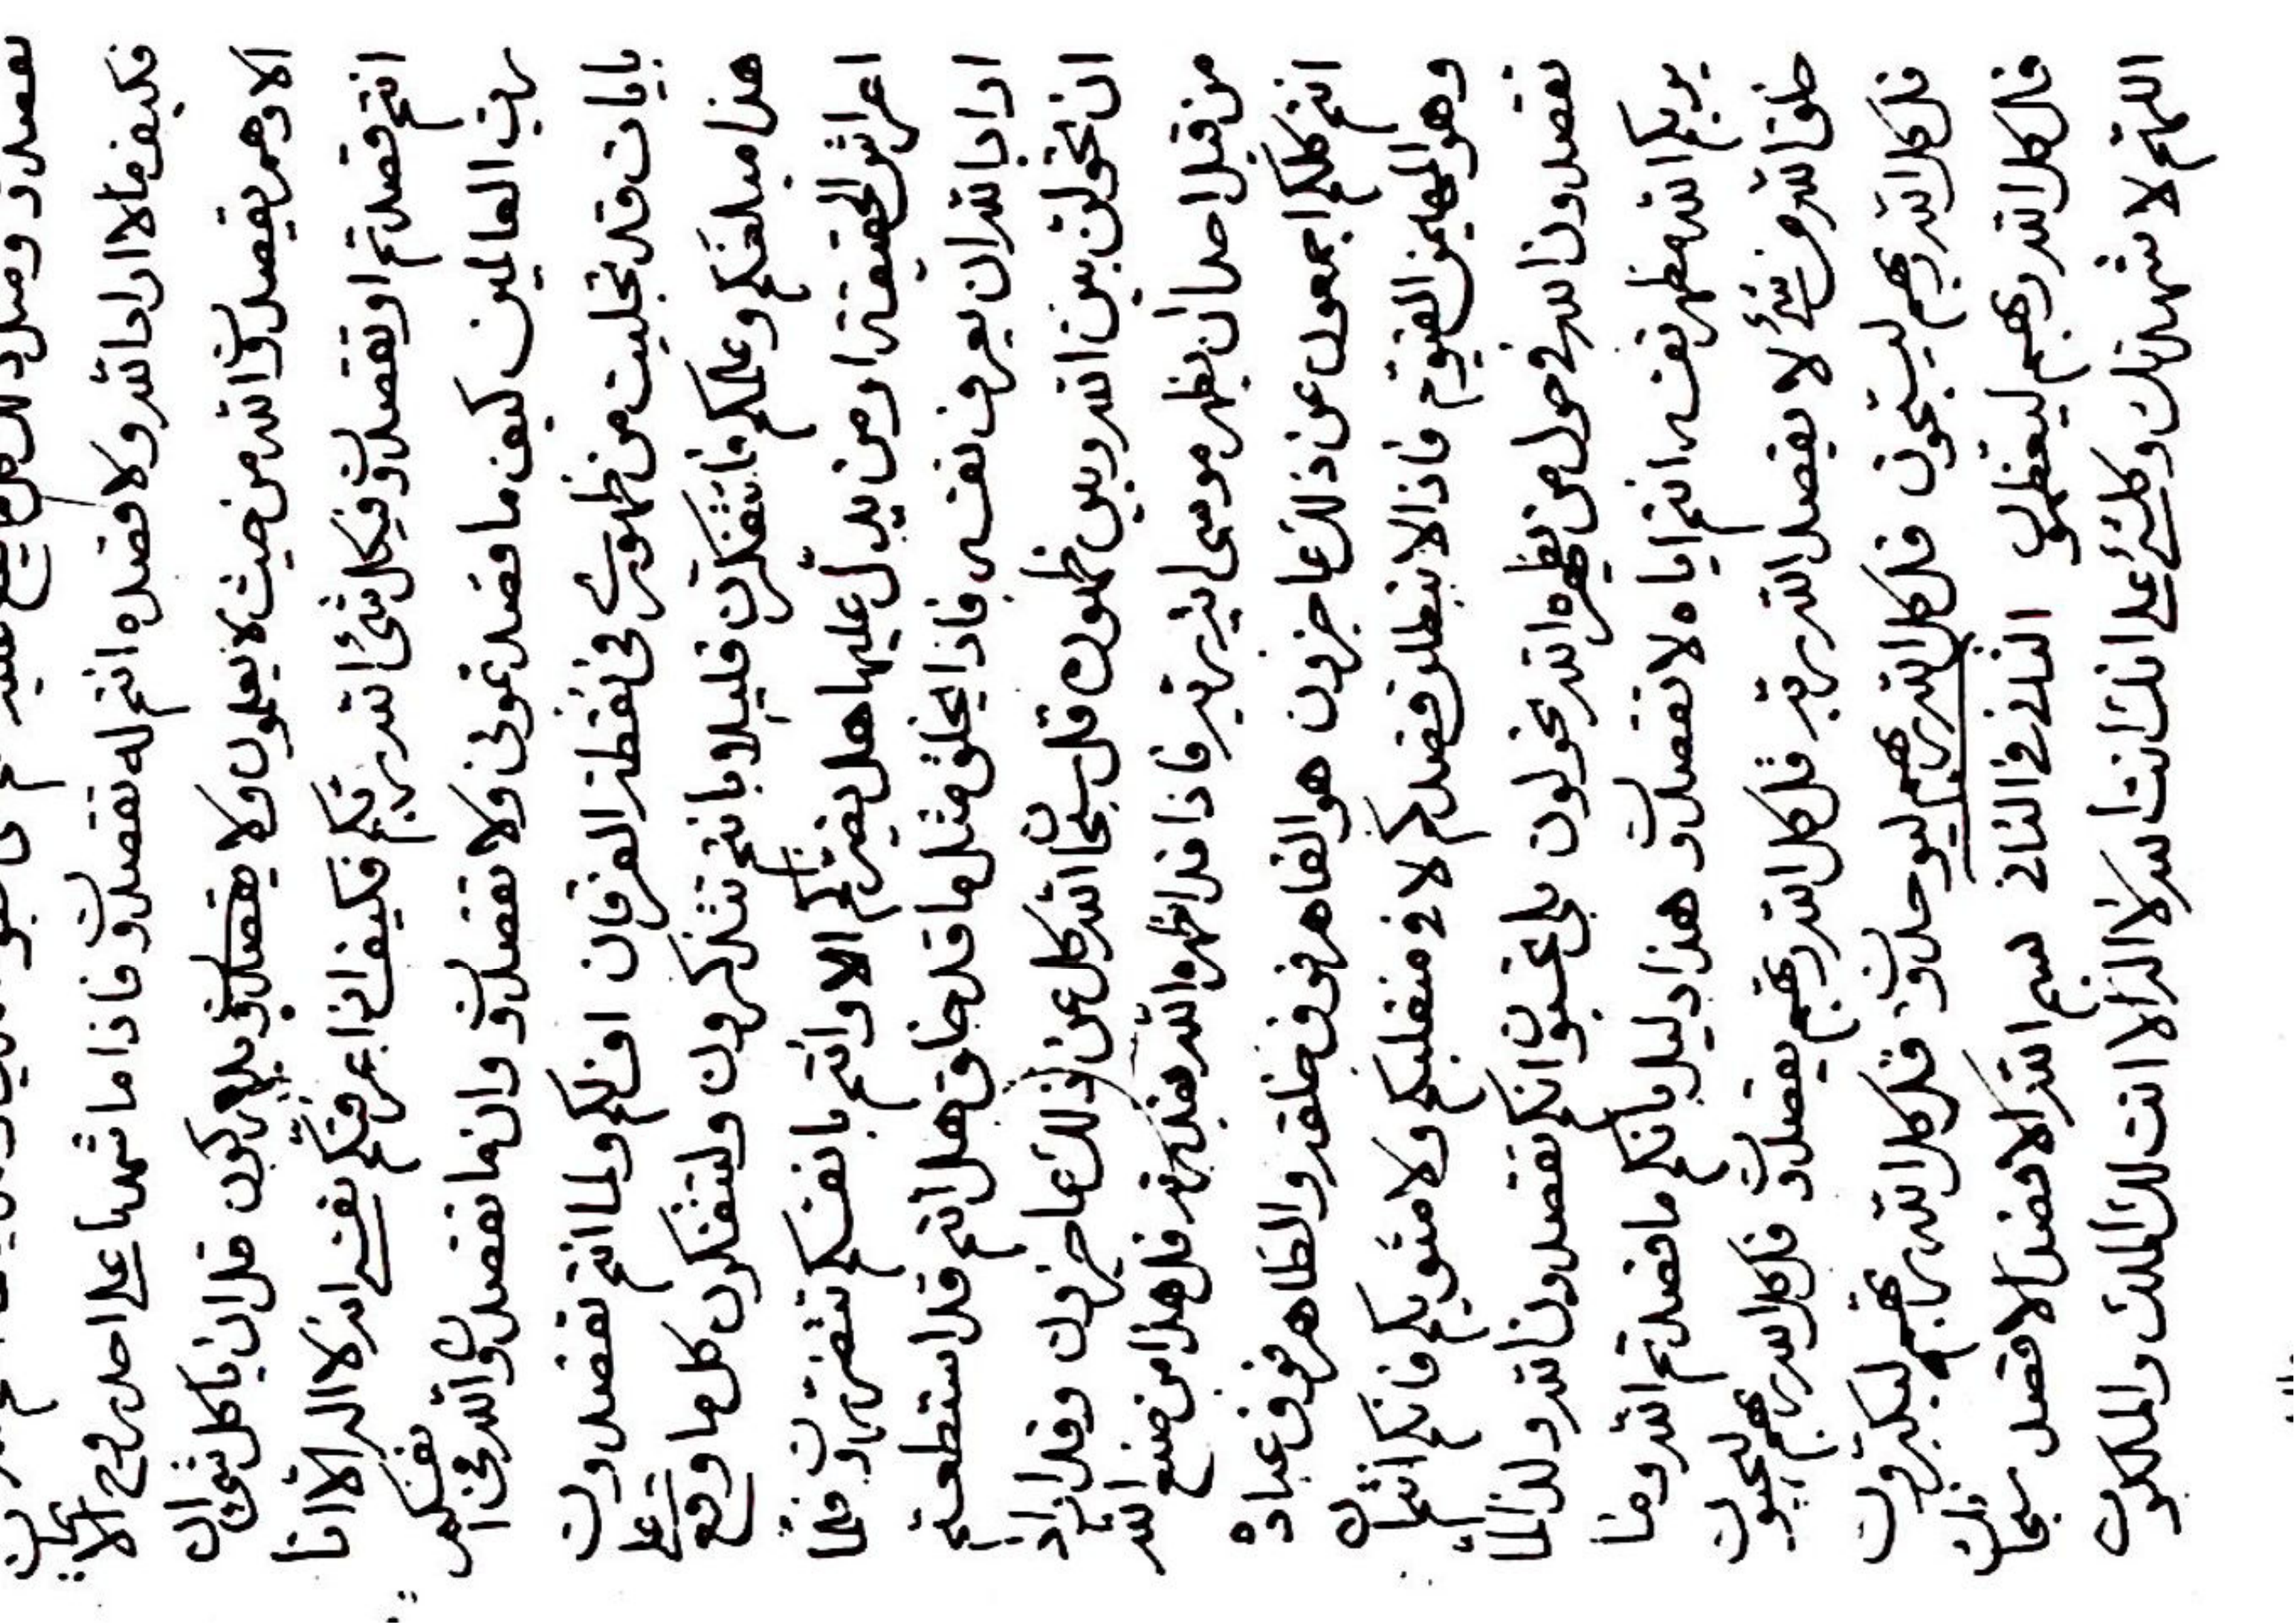 فكيف ما لا اراد الله ولا قصده انتم له تقصدون فاذا ما شهدنا على احد روح الا
الا وهم يقصدون الله من حيث لا يعلمون ولا يقصدون يدركون قل ان يا كل شئ ان
انتم قصدتم او تقصدون فيكل شئ الله ربكم فكيف اذا عرفتكم نفسي انه لا اله الا انا
رب العالمين كيف ما قصدتموني ولا تقصدون وانما تقصدون الله في انفسكم
بايات قد تجليت من ظهوري في نقطة الفرقان اف لكم ولما انتم تقصدون
هذا مبلغكم وعلمكم فلتتفكرن قليلا ما انتم تتذكرون ولتتفكرون كل ما وقع على
اعراش الحقيقة او من يدل عليها هل يضرنكم الا وانتم بانفسكم تتضررون فلما
اراد الله ان يعرف نفسه فاذا يخلق مثل ما قد خلق هل انتم قد استطعتم
ان تحولن بين الله وبين ظهوره قل سبحان الله كل عن ذلك عاجزون وقد اراد
من قبل احد ان يظهر موسى لبريته فاذا قد اظهره الله قل هذا من صنع الله
انتم كلكم اجمعون عن ذلك عاجزون هو القاهر فوق خلقه والظاهر فوق عباده
وهو المهيمن القيوم فاذا لا تبطلن قصدكم لا في منقلبكم ولا مثويكم فانكم انتم ان
تقصدون الله في حول من يظهره الله تحولون بلى تحسبون انكم تقصدون الله ولذا لما
يريكم الله مظهر نفسه انتم اياه لا تقصدون هذا دليل بانكم ما قصدتم الله وما
خلق الله من شئ لا يقصد الله ربه قل كل الله ربهم يقصدون قل كل الله ربهم ليحبون
قل كل الله ربهم ليسبحون قل كل الله ربهم ليوحدون قل كل الله ربهم ليكبرون
قل كل الله ربهم ليعظمون الثاني في الثاني بسم الله الاقصد الاقصد سبحانك
اللهم لاشهدنك وكلشئ على انك انت الله لا اله الا انت لك الملك والملكوت